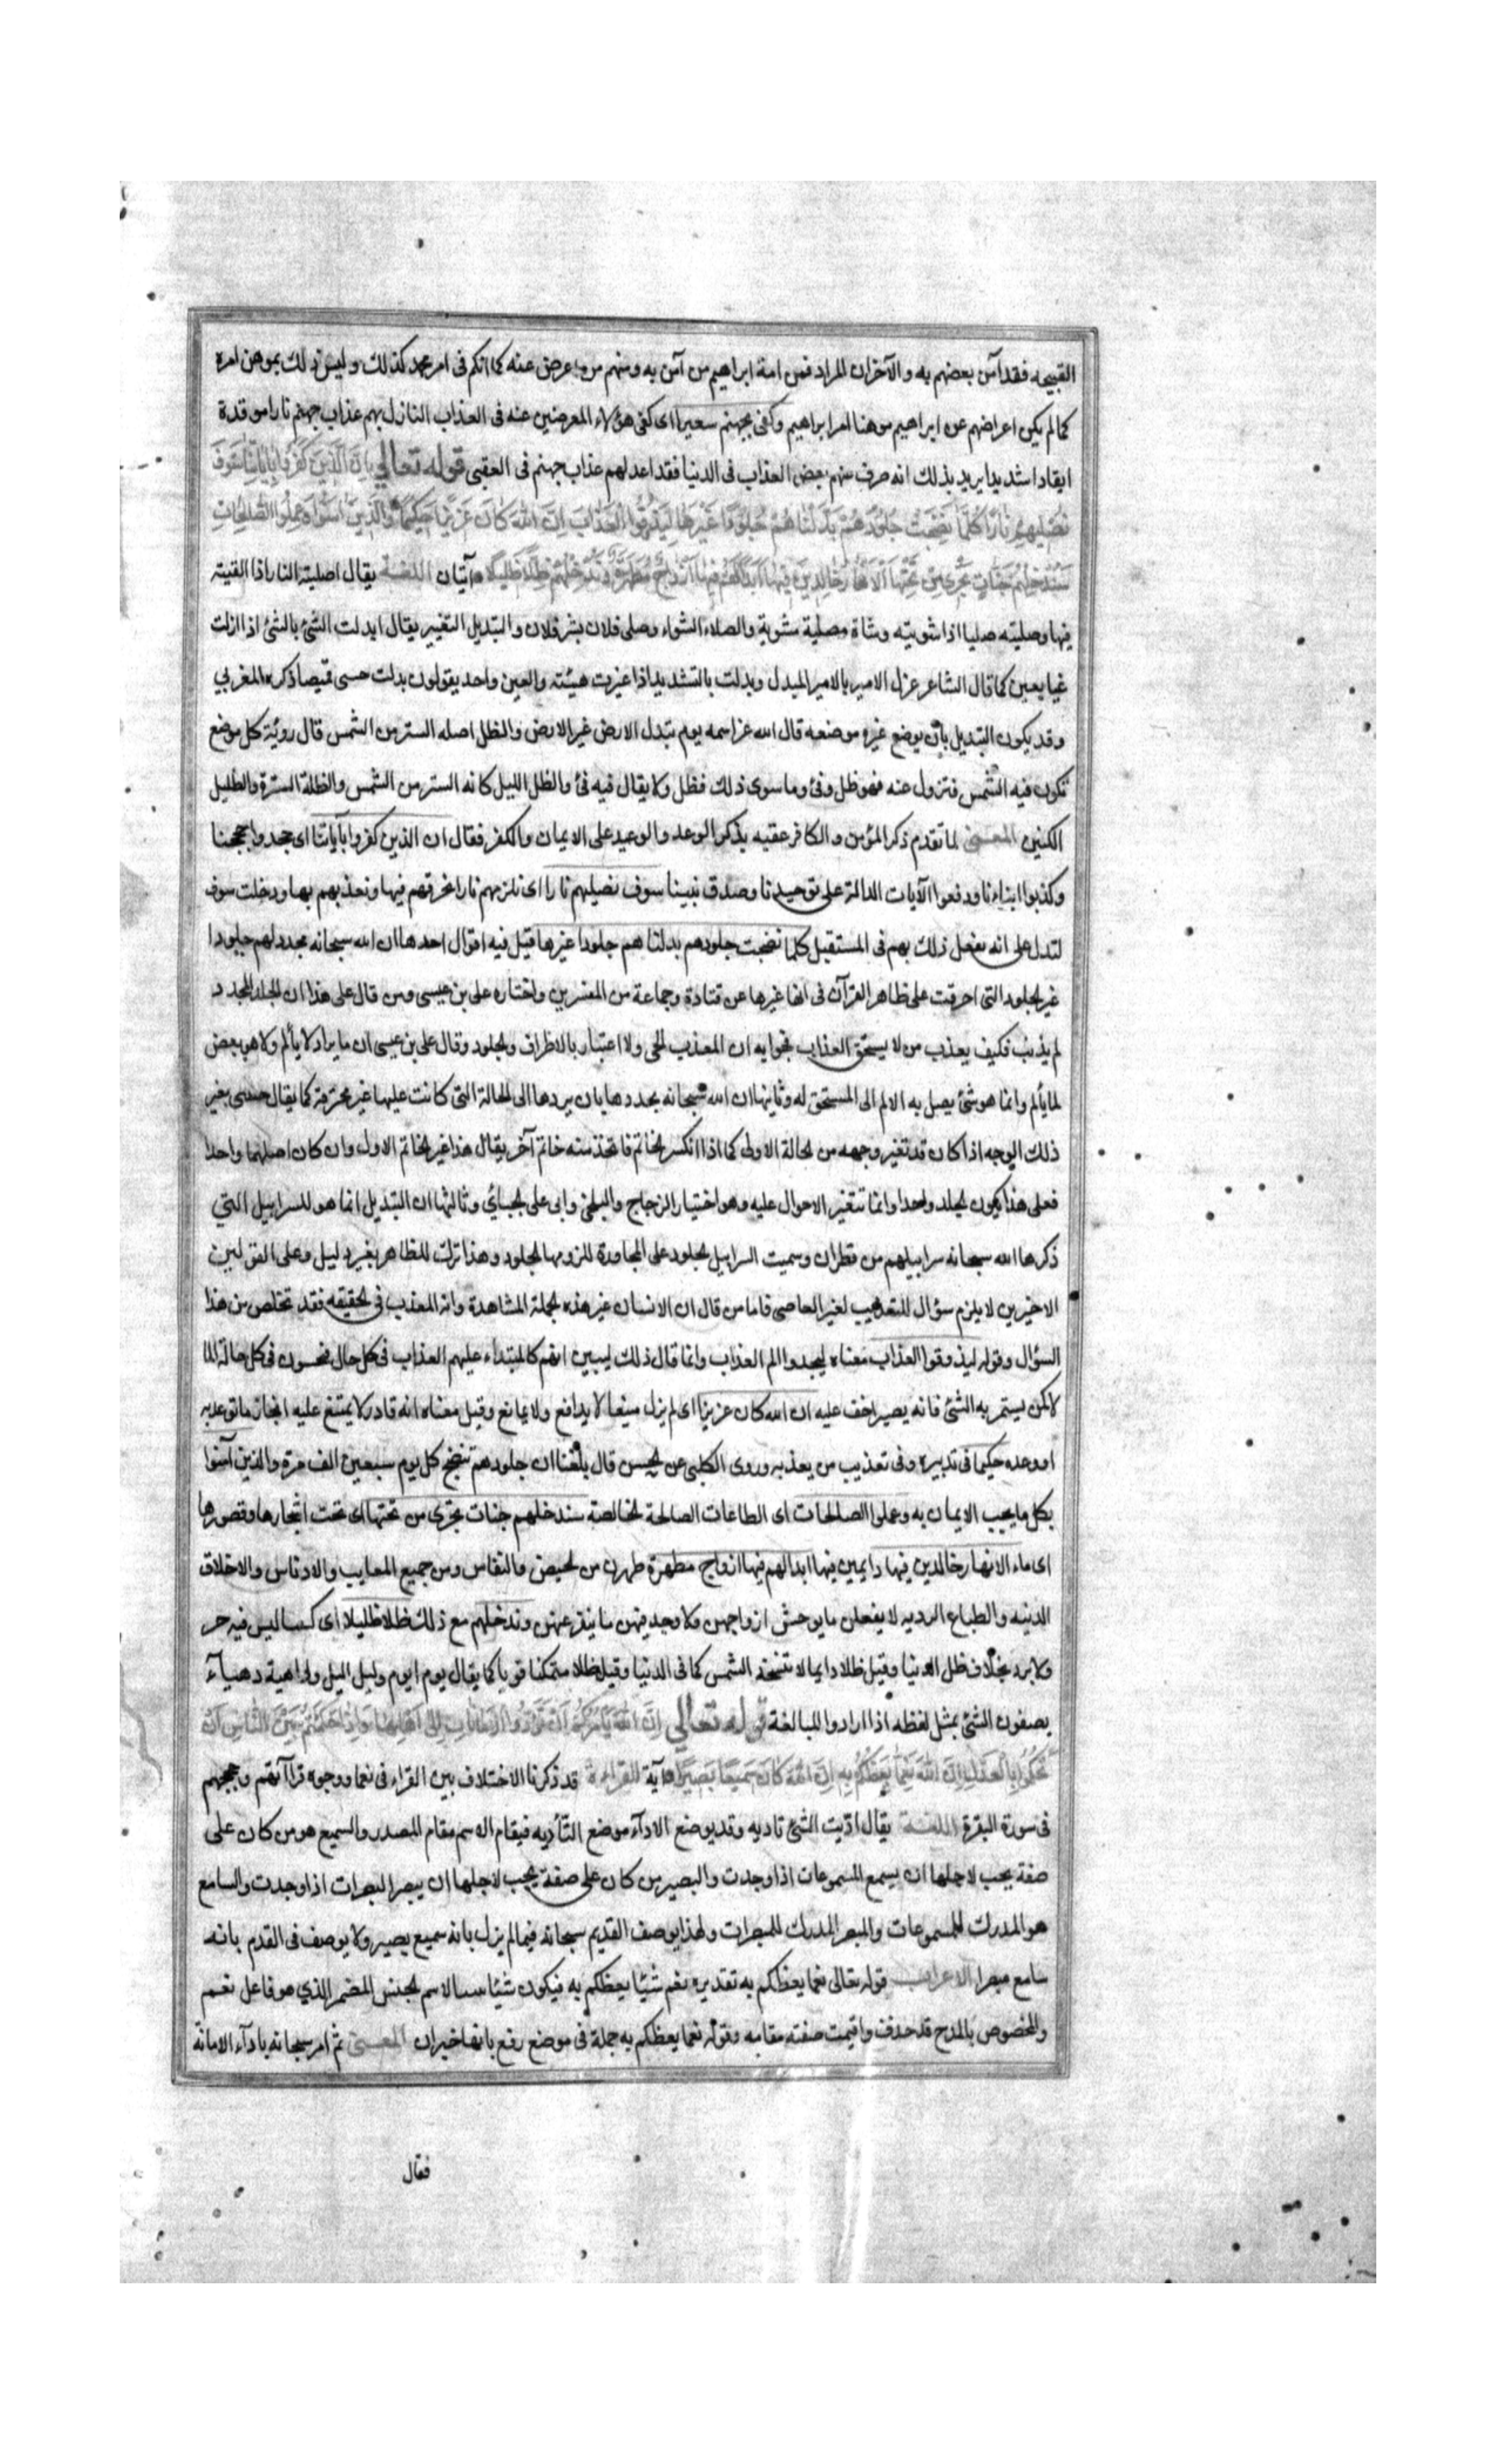 القبيحه فقد آمن بعضهم به والآخر ان المراد فمن امة ابراهيم من آمن به ومنهم من اعرض عنه كما انكم فى امر محمد كذلك وليس ذلك بموهن امره
كما لم يكن اعراضهم عن ابراهيم موهنا امر ابراهيم وكفى بجهنم سعيرا اى كفى هؤلاء المعرضين عنه فى العذاب النازل بهم عذاب جهنم نارا موقدة
ايقادا شديدا يريد بذلك انه صرف منهم بعض العذاب فى الدنيا فقد اعد لهم عذاب جهنم فى العقبى قوله تعالى اِنَّ الَّذِينَ كَفَرُوا بِاٰيَاتِنَا سَوْفَ
نُصْلِيهِمْ نَارًا كُلَّمَا نَضِجَتْ جُلُودُهُمْ بَدَّلْنَاهُمْ جُلُودًا غَيْرَهَا لِيَذُوقُوا الْعَذَابَ اِنَّ اللهَ كَانَ عَزِيزًا حَكِيمًا وَالَّذِينَ اٰمَنُوا وَعَمِلُوا الصَّالِحَاتِ
سَنُدْخِلُهُمْ جَنَّاتٍ تَجْرِي مِنْ تَحْتِهَا الْاَنْهَارُ خَالِدِينَ فِيهَا اَبَدًا لَهُمْ فِيهَا اَزْوَاجٌ مُطَهَّرَةٌ وَنُدْخِلُهُمْ ظِلًّا ظَلِيلًا آيتان اللغـة يقال اصليته النار اذا القيته
فيها وصليته صليا اذا شويته وشاة مصلية مشوية والصلاء الشواء وصلى فلان بشر فلان والتبديل التغيير يقال ابدلت الشئ بالشئ اذا ازلت
عينا بعين كما قال الشاعر عزل الامير بالامير المبدل وبدلت بالتشديد اذا غيرت هيئته والعين واحد يقولون بدلت جبتى قميصا ذكره المغربي
وقد يكون التبديل بأن يوضع غيره موضعه قال الله عز اسمه يوم تبدل الارض غير الارض والظل اصله الستر من الشمس قال روية كل موضع
تكون فيه الشمس فتزول عنه فهو ظل وفئ وما سوى ذلك فظل ولا يقال فيه فئ والظل الليل كانه الستر من الشمس والظلة السترة والظليل
الكنين المعـنى لما تقدم ذكر المؤمن والكافر عقبه بذكر الوعد والوعيد على الايمان والكفر فقال ان الذين كفروا بآياتنا اى جحدوا حججنا
وكذبوا انبياءنا ودفعوا الآيات الدالة على توحيدنا وصدق نبينا سوف نصليهم نارا اى نلزمهم نارا نحرقهم فيها ونعذبهم بها ودخلت سوف
لتدل على انه يفعل ذلك بهم فى المستقبل كلما نضجت جلودهم بدلناهم جلودا غيرها قيل فيه اقوال احدها ان الله سبحانه يجدد لهم جلودا
غير الجلود التى احرقت على ظاهر القرآن فى انها غيرها عن قتادة وجماعة من المفسرين واختاره على بن عيسى ومن قال على هذا ان الجلد المجدد
لم يذنب فكيف يعذب من لا يستحق العذاب فجوابه ان المعذب الحى ولا اعتبار بالاطراف والجلود وقال على بن عيسى ان ما يزاد لا يألم ولا هو بعض
لما يألم وانما هو شئ يصل به الالم الى المستحق له وثانيها ان الله سبحانه يجددها بان يردها الى الحالة التى كانت عليها غير محترقة كما يقال جئتنى بغير
ذلك الوجه اذا كان قد تغير وجهه من الحالة الاولى كما اذا انكسر الخاتم فاتخذ منه خاتم آخر يقال هذا غير الخاتم الاول وان كان اصلهما واحدا
فعلى هذا يكون الجلد واحدا وانما تتغير الاحوال عليه وهو اختيار الزجاج والبلخى وابى على الجبائي وثالثها ان التبديل انما هو للسرابيل التي
ذكرها الله سبحانه سرابيلهم من قطران وسميت السرابيل الجلود على المجاورة للزومها الجلود وهذا ترك للظاهر بغير دليل وعلى القولين
الاخيرين لا يلزم سؤال التعذيب لغير العاصى فاما من قال ان الانسان غير هذه الجملة المشاهدة وانه المعذب فى الحقيقه فقد تخلص من هذا
السؤال وقوله ليذوقوا العذاب معناه ليجدوا الم العذاب وانما قال ذلك ليبين انهم كالمبتداء عليهم العذاب فى كل حال فيحسون فى كل حالة الما
لا كمن يستمر به الشئ فانه يصير اخف عليه ان الله كان عزيزا اى لم يزل منيعا لا يدافع ولا يمانع وقيل معناه انه قادر لا يمتنع عليه انجاز ما توعد به
او وعده حكيما فى تدبيره وفى تعذيب من يعذبه وروى الكلبى عن الحسن قال بلغنا ان جلودهم تنضج كل يوم سبعين الف مرة والذين آمنوا
بكل ما يجب الايمان به وعملوا الصالحات اى الطاعات الصالحة الخالصة سندخلهم جنات تجرى من تحتها اى تحت اشجارها وقصورها
اى ماء الانهار خالدين فيها دايمين فيها ابدا لهم فيها ازواج مطهرة طهرن من الحيض والنفاس ومن جميع المعايب والادناس والاخلاق
الدنيه والطباع الرديه لا يفعلن ما يوحش ازواجهن ولا وجد فيهن ما ينفر عنهن وندخلهم مع ذلك ظلا ظليلا اى كنينا ليس فيه حر
ولا برد بخلاف ظل الدنيا وقيل ظلا دايما لا تنسخه الشمس كما فى الدنيا وقيل ظلا متمكنا قويا كما يقال يوم ايوم وليل اليل وداهية دهياء
يصفون الشئ بمثل لفظه اذا ارادوا المبالغة قوله تعالى اِنَّ اللهَ يَأْمُرُكُمْ اَنْ تُؤَدُّوا الْاَمَانَاتِ اِلٰى اَهْلِهَا وَاِذَا حَكَمْتُمْ بَيْنَ النَّاسِ اَنْ
تَحْكُمُوا بِالْعَدْلِ اِنَّ اللهَ نِعِمَّا يَعِظُكُمْ بِهِ اِنَّ اللهَ كَانَ سَمِيعًا بَصِيرًا آية القراءة قد ذكرنا الاختلاف بين القراء فى نعما ووجوه قراآتهم وحججهم
فى سورة البقرة اللغـة يقال اديت الشئ تاديه وقد يوضع الاداء موضع التأديه فيقام الاسم مقام المصدر والسميع هو من كان على
صفة يجب لاجلها ان يسمع المسموعات اذا وجدت والبصير من كان على صفة يجب لاجلها ان يبصر المبصرات اذا وجدت والسامع
هو المدرك للمسموعات والمبصر المدرك للمبصرات ولهذا يوصف القديم سبحانه فيما لم يزل بانه سميع بصير ولا يوصف فى القدم بانه
سامع مبصر الاعراب قوله تعالى نعما يعظكم به تقديره نعم شيئا يعظكم به فيكون شيئا الاسم الجنس المضمر الذي هو فاعل نعم
والمخصوص بالمدح قد حذف واقيمت صفته مقامه وقوله نعما يعظكم به جملة فى موضع رفع بانها خبر ان المعـنى ثم امر سبحانه باداء الامانة
فقال